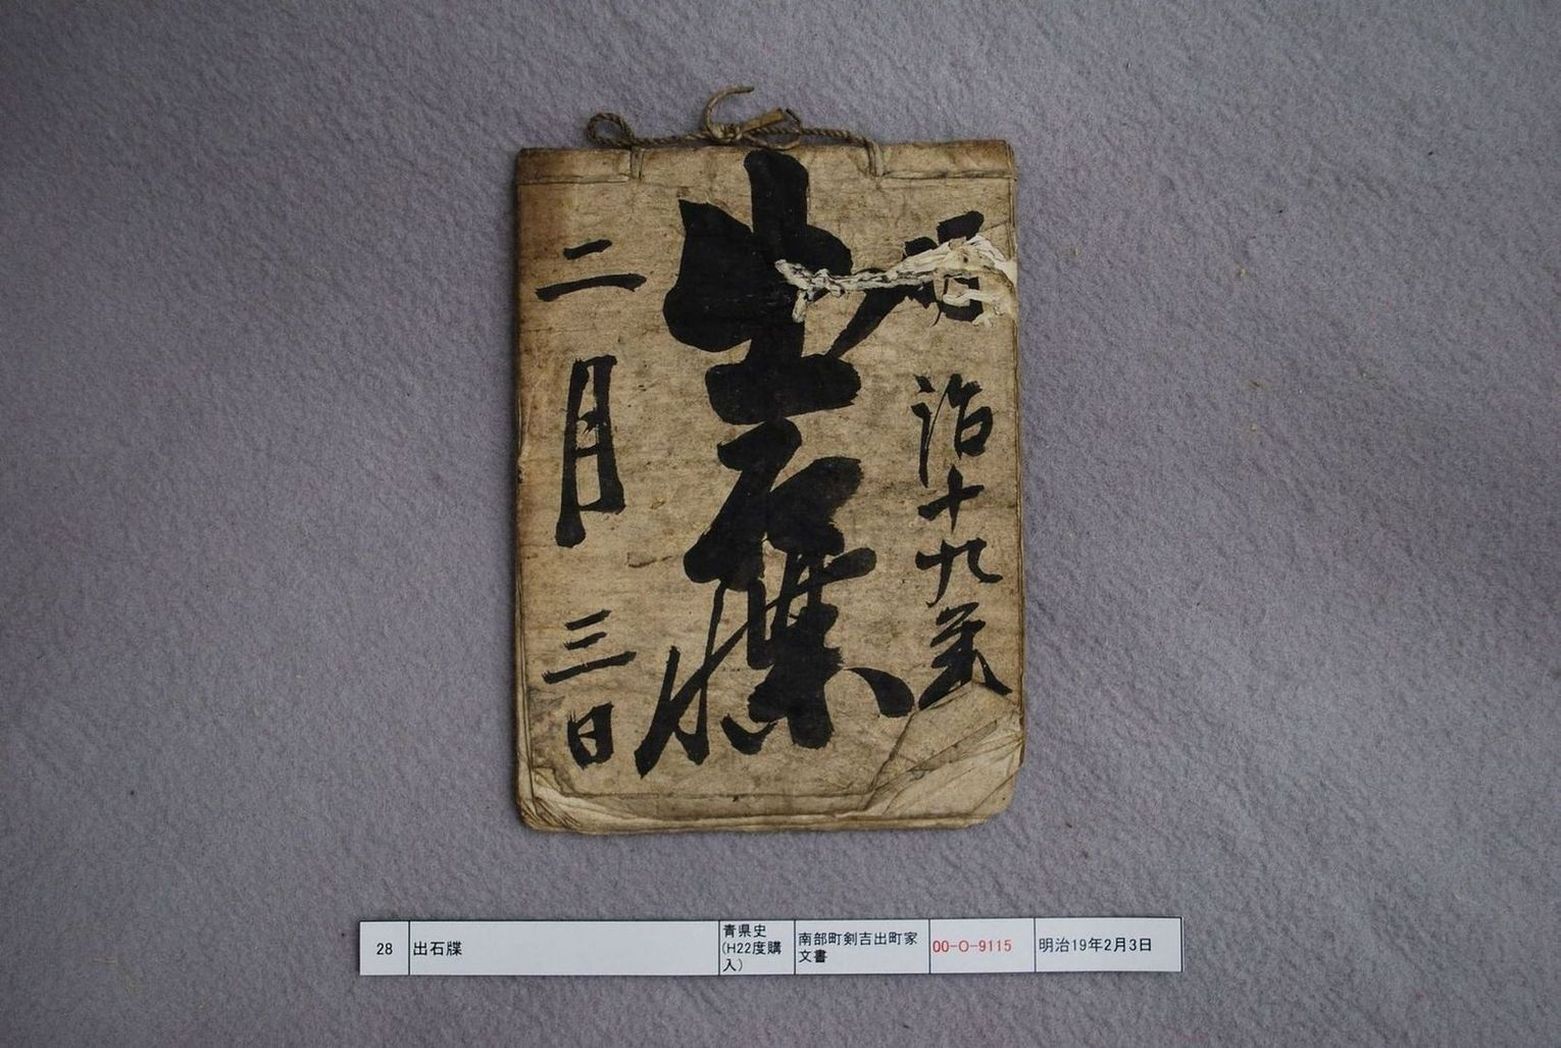 明治十九年
出石牒
二月三日
28
出石牒
青県史
(H22度購
入)
南部町剣吉出町家
文書
00-O-9115
明治19年2月3日